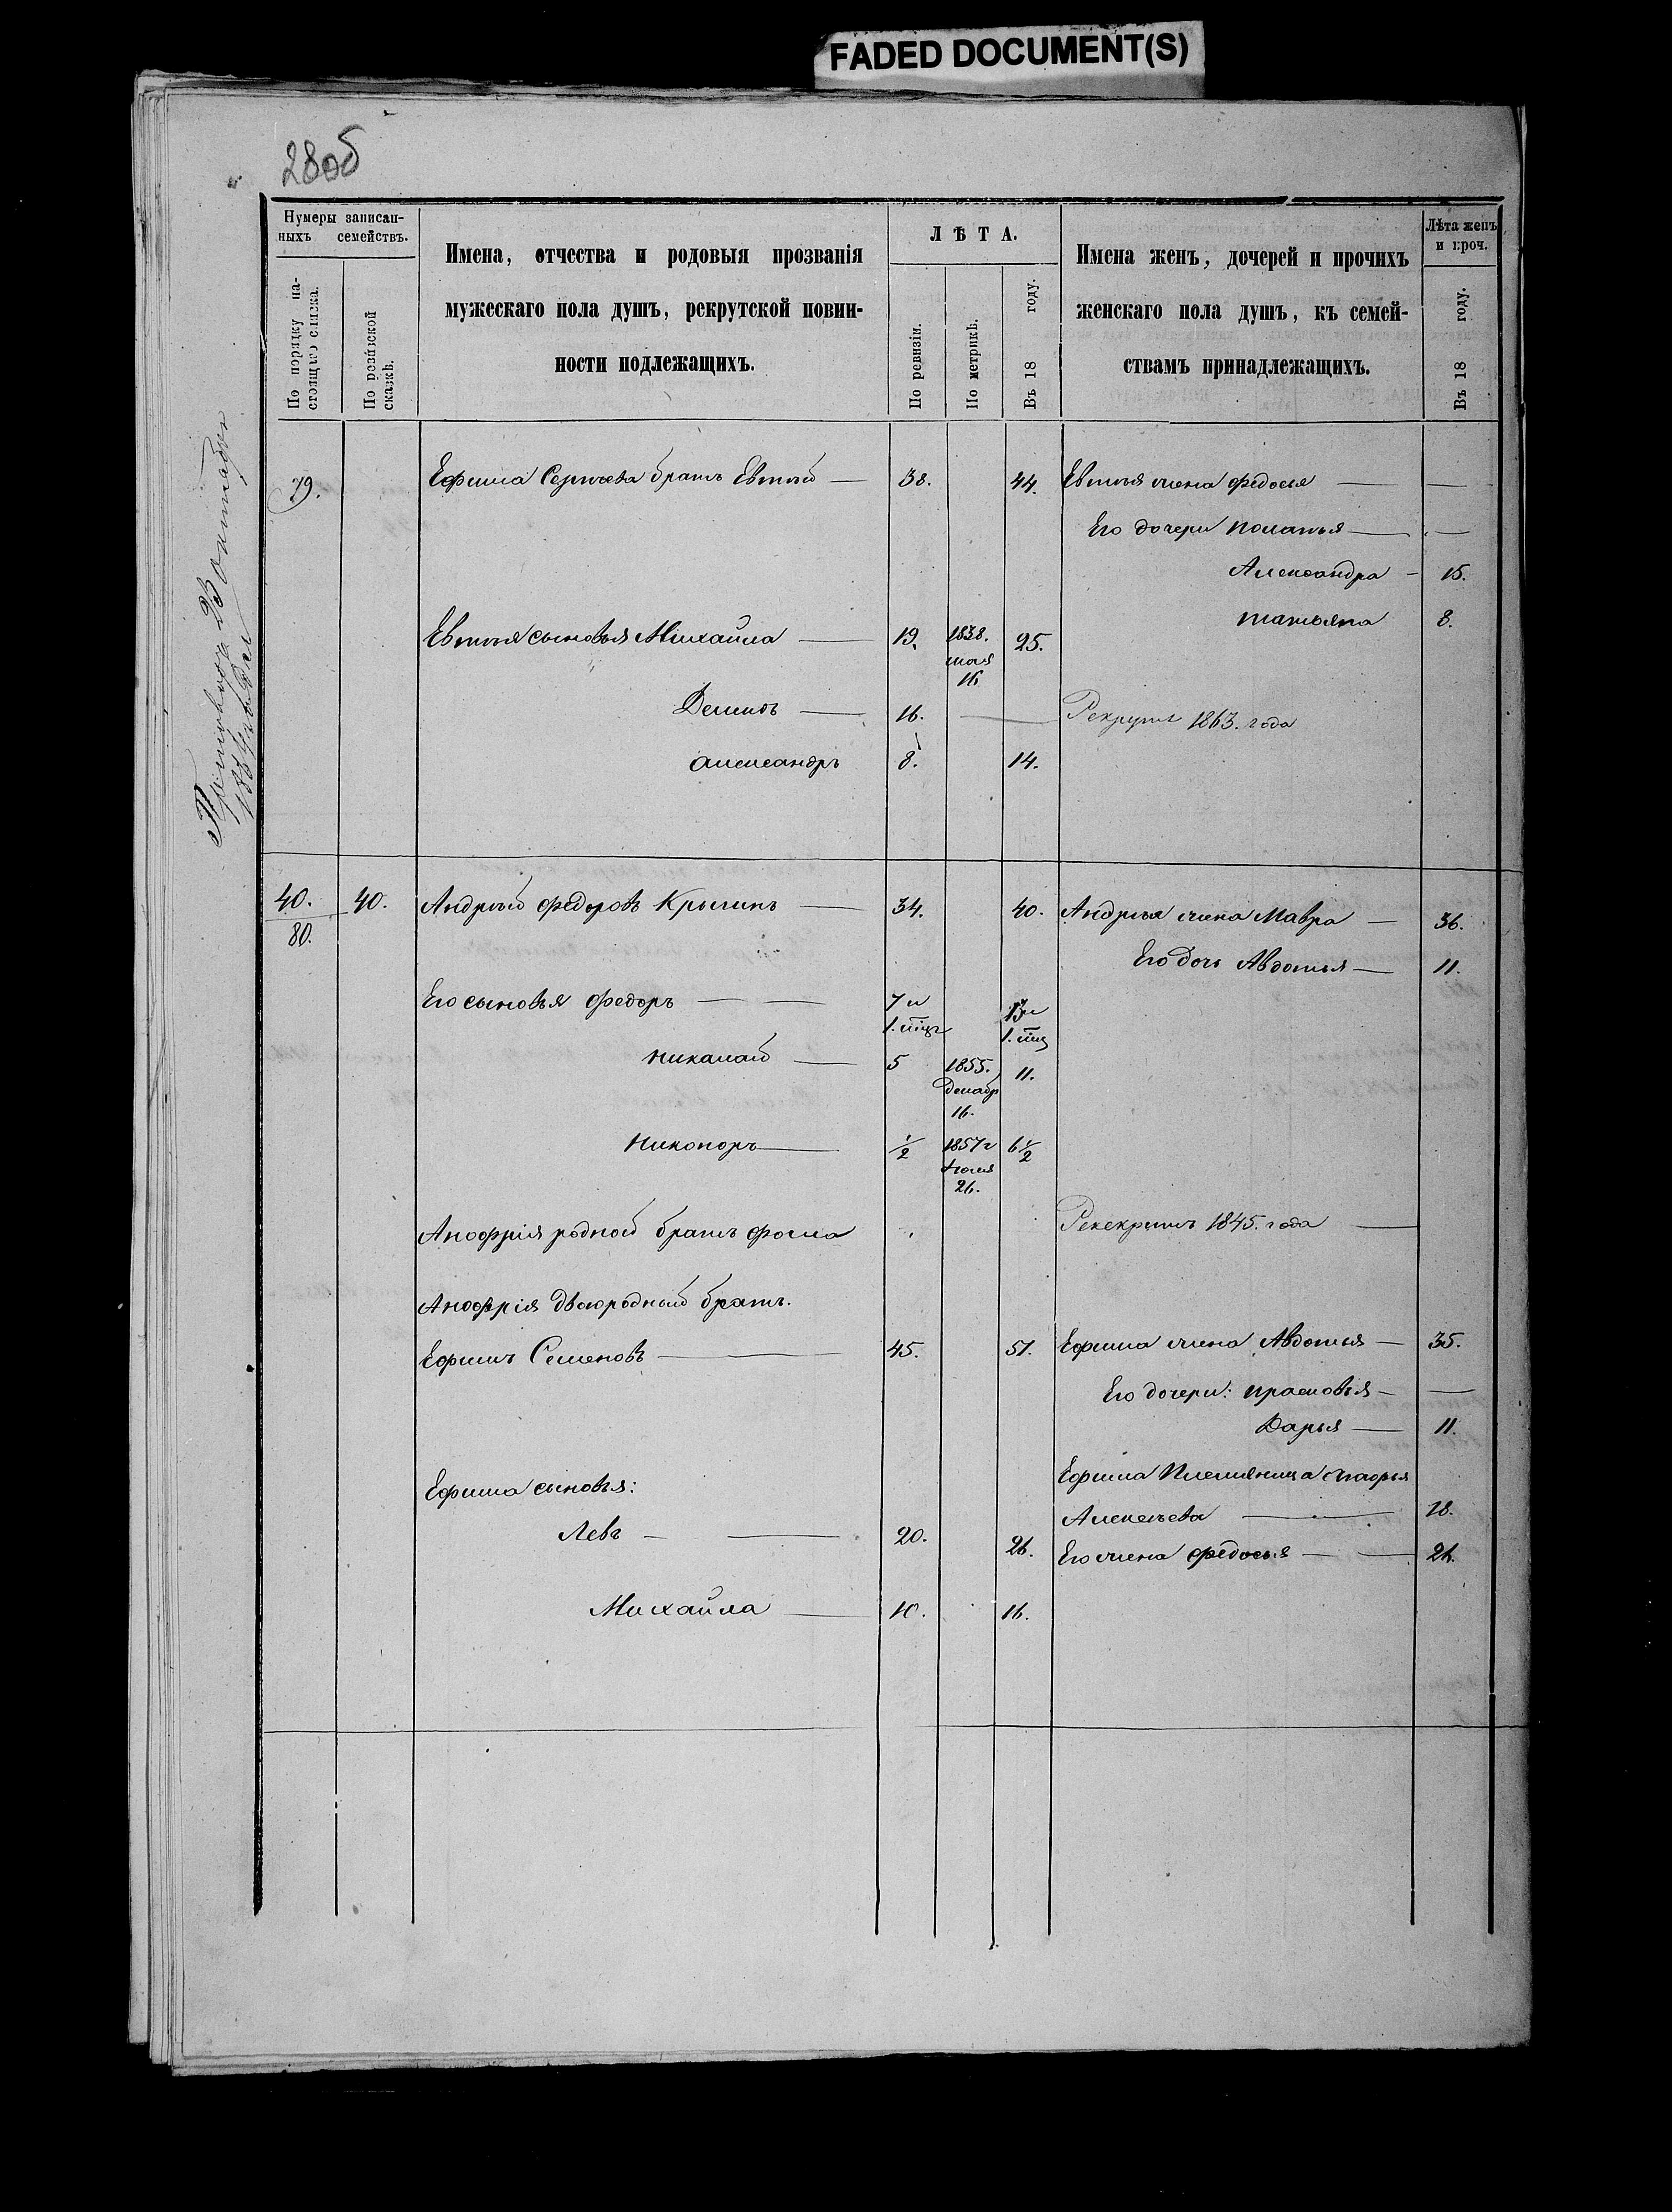 FADED DOCUMENT(S)
28об
Нумеры записан-
ныхъ семействъ.
По порядку на-
стоящаго списка.
По ревизской
сказкѣ.
Имена, отчества и родовыя прозванія
мужескаго пола душъ, рекрутской повин-
ности подлежащихъ.
ЛѢТА.
По ревизіи.
По метрикѣ.
Въ 18 году.
Имена женъ, дочерей и прочихъ
женскаго пола душъ, къ семей-
ствамъ принадлежащихъ.
Лѣта женъ
и проч.
Въ 18 году.
Приговоръ 23 октября
1864 года
79. Ефима Сергѣева братъ Евтѣй — 38. 44. Евтѣя жена Федосья — —
Его дочери Маланья — —
Александра — 15.
Татьяна 8.
Евтѣя сыновья Михайла — 19. 1838. мая 16 25.
Демидъ — 16. — Рекрутъ 1863. года
Александръ 8. 14.
40. 40. Андрѣй Федоровъ Крысинъ — 34. 40. Андрѣя жена Мавра — 36.
80.
Его дочь Авдотья — 11.
Его сыновья Федоръ — — 7 и 1. мѣц 13 и 1. мѣц
Никалай — 5 1855. Декабр 16. 11.
Никоноръ — 1/2 1857 г Июля 26. 6 1/2
Анофрія родной братъ Фома Рекекрутъ 1845. года —
Анофрія двоюродный братъ.
Ефимъ Семеновъ — 45. 51. Ефима жена Авдотья — 35.
Его дочери: Прасковья — —
Дарья — 11.
Ефима сыновья: Ефима племяница Марья
Алексѣева — 18.
Левъ — — 20. 26. Его жена Федосья — — 26.
Михайла — 10. 16.